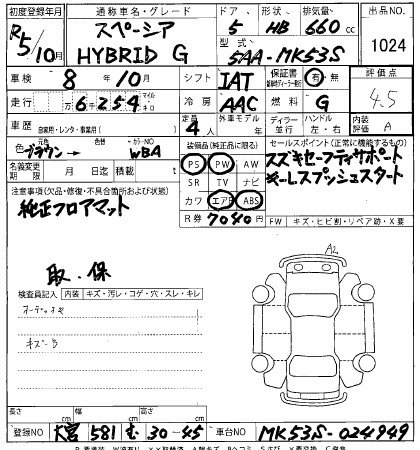 初度登録年月 通称車名・グレード ドア 形状 排気量 出品NO.
R5/10月 スペーシア HYBRID G 5 HB 660cc 1024
型式 5AA-MK53S
車検 8年10月 シフト IAT 保証書 有・無 評価点
走行 6254 マイル キロ 冷房 AAC 燃料 G 4.5
車歴 自家用・レンタ・事業用( ) 定員 4人 外車モデル ディーラー 並行 ハンドル 左・右 内装評価 A
色 ブラウン→ 色替 カラーNO WBA 装備品(純正品に限る) セールスポイント(正常に機能するもの)
名義変更期限 月 日迄 積載 PS PW スズキセーフティサポート
注意事項(欠品・修復・不具合箇所および状態) SR TV ナビ キーレスプッシュスタート
純正フロアマット カワ エアB ABS
R券 7040円 FW キズ・ヒビ割・リペア跡・X要
取・保 A2
検査員記入 内装 キズ・汚レ・コゲ・穴・スレ・キレ
キズ・B
長さ cm 幅 cm 高さ cm
登録NO 大宮 581 む 30-45 車台NO MK53S-024949